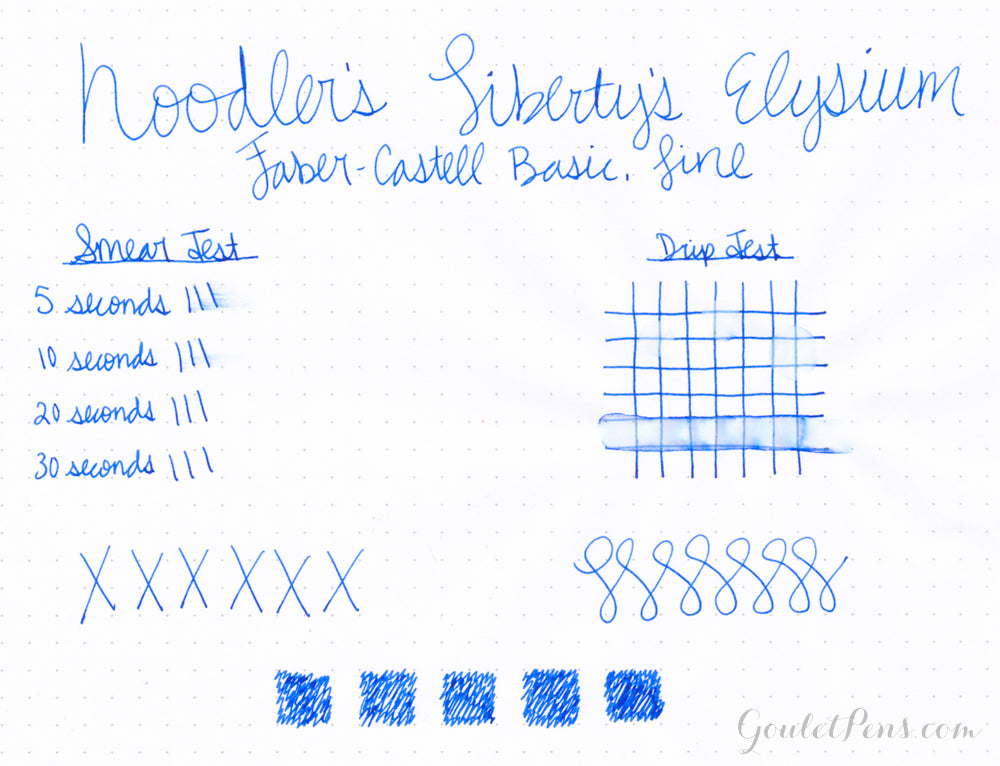 Noodler's Liberty's Elysium
Faber-Castell Basic. fine
Smear Test
5 seconds
10 seconds
20 seconds
30 seconds
Drip Test
X X X X X X
GouletPens.com